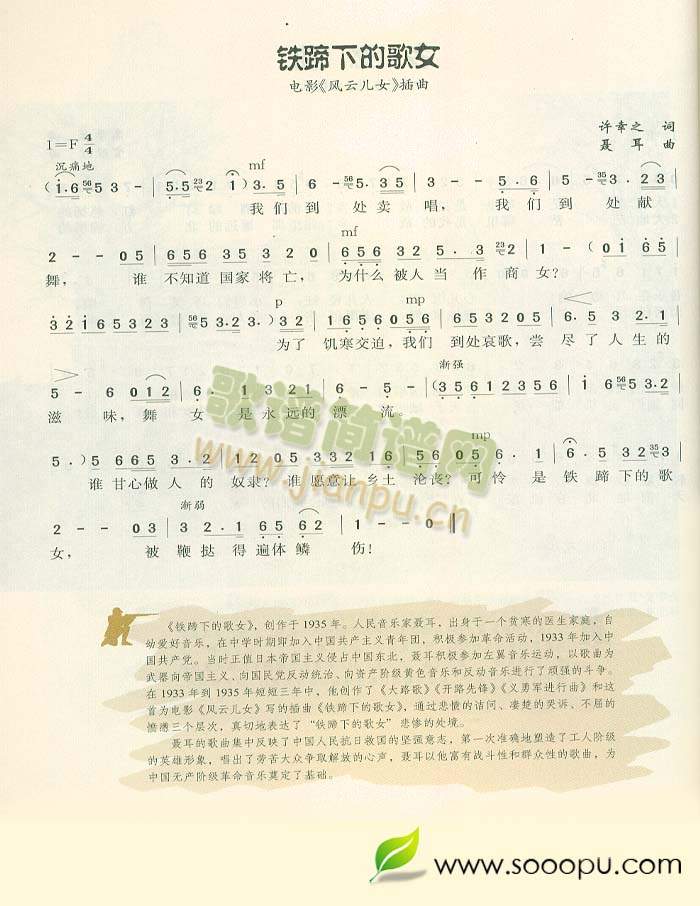 铁蹄下的歌女
电影《风云儿女》插曲
许幸之 词
1=F 4/4
聂耳 曲
沉痛地
mf
我们到 处卖 唱， 我们到 处献
mf
舞， 谁 不知道国家将亡， 为什么被人当 作商女？
p mp
为了 饥寒交迫，我们 到处哀歌，尝 尽了人生的
渐强
滋 味，舞 女 是永远的漂 流。
mp
谁甘心做人的 奴隶？谁愿意让乡土 沦丧？可怜 是铁 蹄下的歌
渐弱
女， 被鞭挞得遍体鳞 伤！
歌谱简谱网
www.jianpu.cn
《铁蹄下的歌女》，创作于1935年。人民音乐家聂耳，出身于一个贫寒的医生家庭，自
幼爱好音乐，在中学时期即加入中国共产主义青年团，积极参加革命活动，1933年加入中
国共产党。当时正值日本帝国主义侵占中国东北，聂耳积极参加左翼音乐运动，以歌曲为
武器向帝国主义、向国民党反动统治、向资产阶级黄色音乐和反动音乐进行了顽强的斗争。
在1933年到1935年短短三年中，他创作了《大路歌》《开路先锋》《义勇军进行曲》和这
首为电影《风云儿女》写的插曲《铁蹄下的歌女》，通过悲愤的诘问、凄楚的哭诉、不屈的
愤懑三个层次，真切地表达了“铁蹄下的歌女”悲惨的处境。
聂耳的歌曲集中反映了中国人民抗日救国的坚强意志，第一次准确地塑造了工人阶级
的英雄形象，唱出了劳苦大众争取解放的心声，聂耳以他富有战斗性和群众性的歌曲，为
中国无产阶级革命音乐奠定了基础。
www.sooopu.com